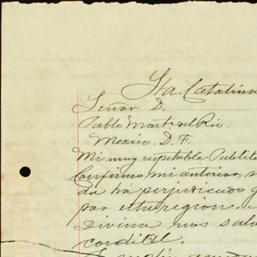 Sta. Catalina
Señor D.
Pablo Mart. del Rio.
Mexico D. F.
Mi muy respetable
Confirmo mi anterior,
da ha perjudicado
por esta region.
Divina nos salv
cordial.